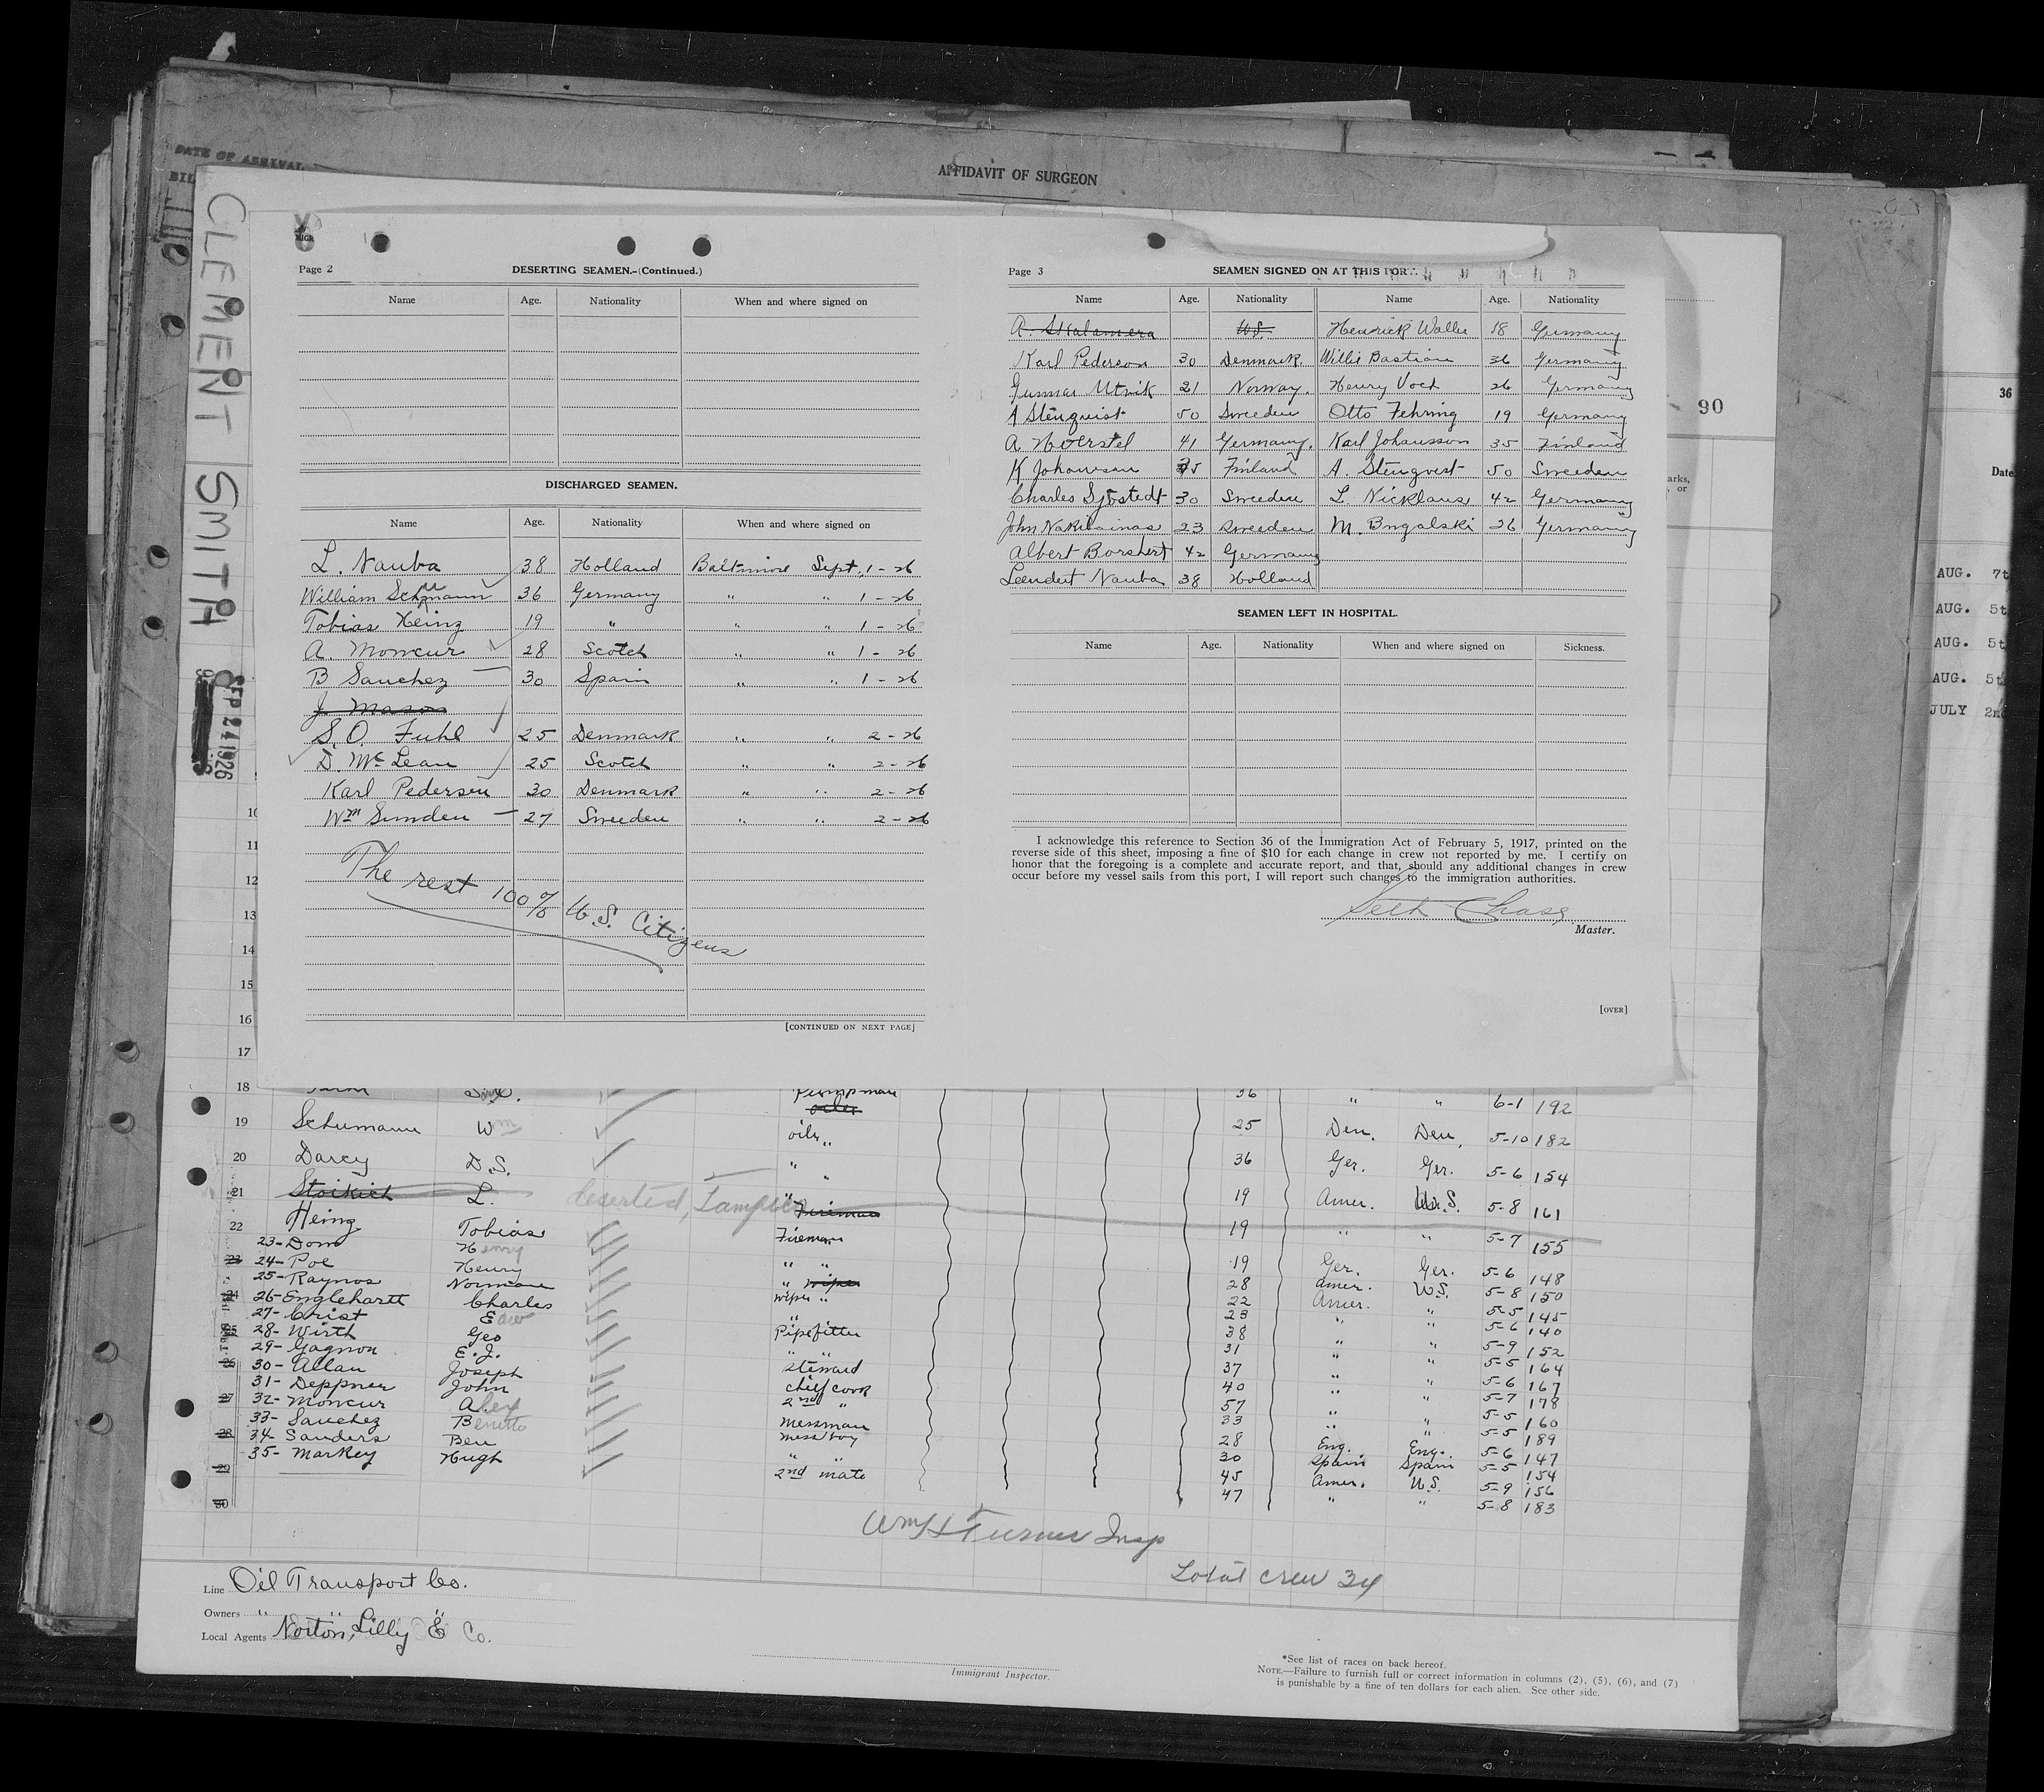 DATE OF ARRIVAL
AFFIDAVIT OF SURGEON
CLEMENT SMITH
SEP 24 1926
Page 2 DESERTING SEAMEN.-(Continued.)
Name Age. Nationality When and where signed on
DISCHARGED SEAMEN.
Name Age. Nationality When and where signed on
L. Nauba 38 Holland Baltimore Sept. 1 - 26
William Schumann 36 Germany " " 1 - 26
Tobias Heing 19 " " " 1 - 26
A. Moncur 28 Scotch " " 1 - 26
B Sanchez 30 Spain " " 1 - 26
J. Mason
S. O. Fuhl 25 Denmark " " 2 - 26
D. McLean 25 Scotch " " 2 - 26
Karl Pedersen 30 Denmark " " 2 - 26
Wm Sunden 27 Sweeden " " 2 - 26
The rest 100% U.S. Citizens
[CONTINUED ON NEXT PAGE]
Page 3 SEAMEN SIGNED ON AT THIS PORT.
Name Age. Nationality Name Age. Nationality
A. Skalamera U.S. Henrick Waller 18 Germany
Karl Pederson 30 Denmark. Willie Bastian 36 Germany
Gunnar Utvik 21 Norway. Henry Voch 26 Germany
A Stenquist 50 Sweeden Otto Fehring 19 Germany
A Hoerstel 41 Germany. Karl Johansson 35 Finland
K Johanson 35 Finland A. Stenqvest 50 Sweeden
Charles Sjöstedt 30 Sweeden L. Nicklaus 42 Germany
John Nakivainas 23 Sweeden M. Bngalski 26 Germany
Albert Borshert 42 Germany
Leendert Nauba 38 Holland
SEAMEN LEFT IN HOSPITAL.
Name Age. Nationality When and where signed on Sickness.
I acknowledge this reference to Section 36 of the Immigration Act of February 5, 1917, printed on the
reverse side of this sheet, imposing a fine of $10 for each change in crew not reported by me. I certify on
honor that the foregoing is a complete and accurate report, and that, should any additional changes in crew
occur before my vessel sails from this port, I will report such changes to the immigration authorities.
Seth Chase
Master.
[OVER]
90
36
Date
arks,
or
AUG. 7t
AUG. 5t
AUG. 5t
AUG. 5t
JULY 2nd
10
11
12
13
14
15
16
17
18 Pumpman 36 " " 6-1 192
19 Schumann Wm oiler " 25 Den. Den. 5-10 182
20 Darcy D.S. " " 36 Ger. Ger. 5-6 154
21 Stoikich L. deserted, Tampico " Fireman 19 Amer. U.S. 5-8 161
22 Heing Tobias Fireman 19 " " 5-7 155
23- Dom Henry " " 19 Ger. Ger. 5-6 148
24- Poe Henry " wiper 28 Amer. U.S. 5-8 150
25- Raynos Norman wiper " 22 Amer. " 5-5 145
26- Englehartt Charles " 23 " 5-6 140
27- Crist Edw Pipefitter 38 " " 5-9 152
28- Wirth Geo " " 31 " " 5-5 164
29- Gagnon E. J. Steward 37 " " 5-6 167
30- Allan Joseph chief cook 40 " " 5-7 178
31- Deppner John 2nd " 57 " " 5-5 160
32- Moncur Alex messman 33 " " 5-5 189
33- Sanchez Benitto mess boy 28 Eng. Eng. 5-6 147
34- Sanders Ben " " 30 Spain Spain 5-5 154
35- Markey Hugh 2nd mate 45 Amer. U.S. 5-9 156
47 " " 5-8 183
Wm H Turner Insp
Total crew 34
Line Oil Transport Co.
Owners " "
Local Agents Norton, Lilly & Co.
Immigrant Inspector.
*See list of races on back hereof.
NOTE.—Failure to furnish full or correct information in columns (2), (5), (6), and (7)
is punishable by a fine of ten dollars for each alien. See other side.